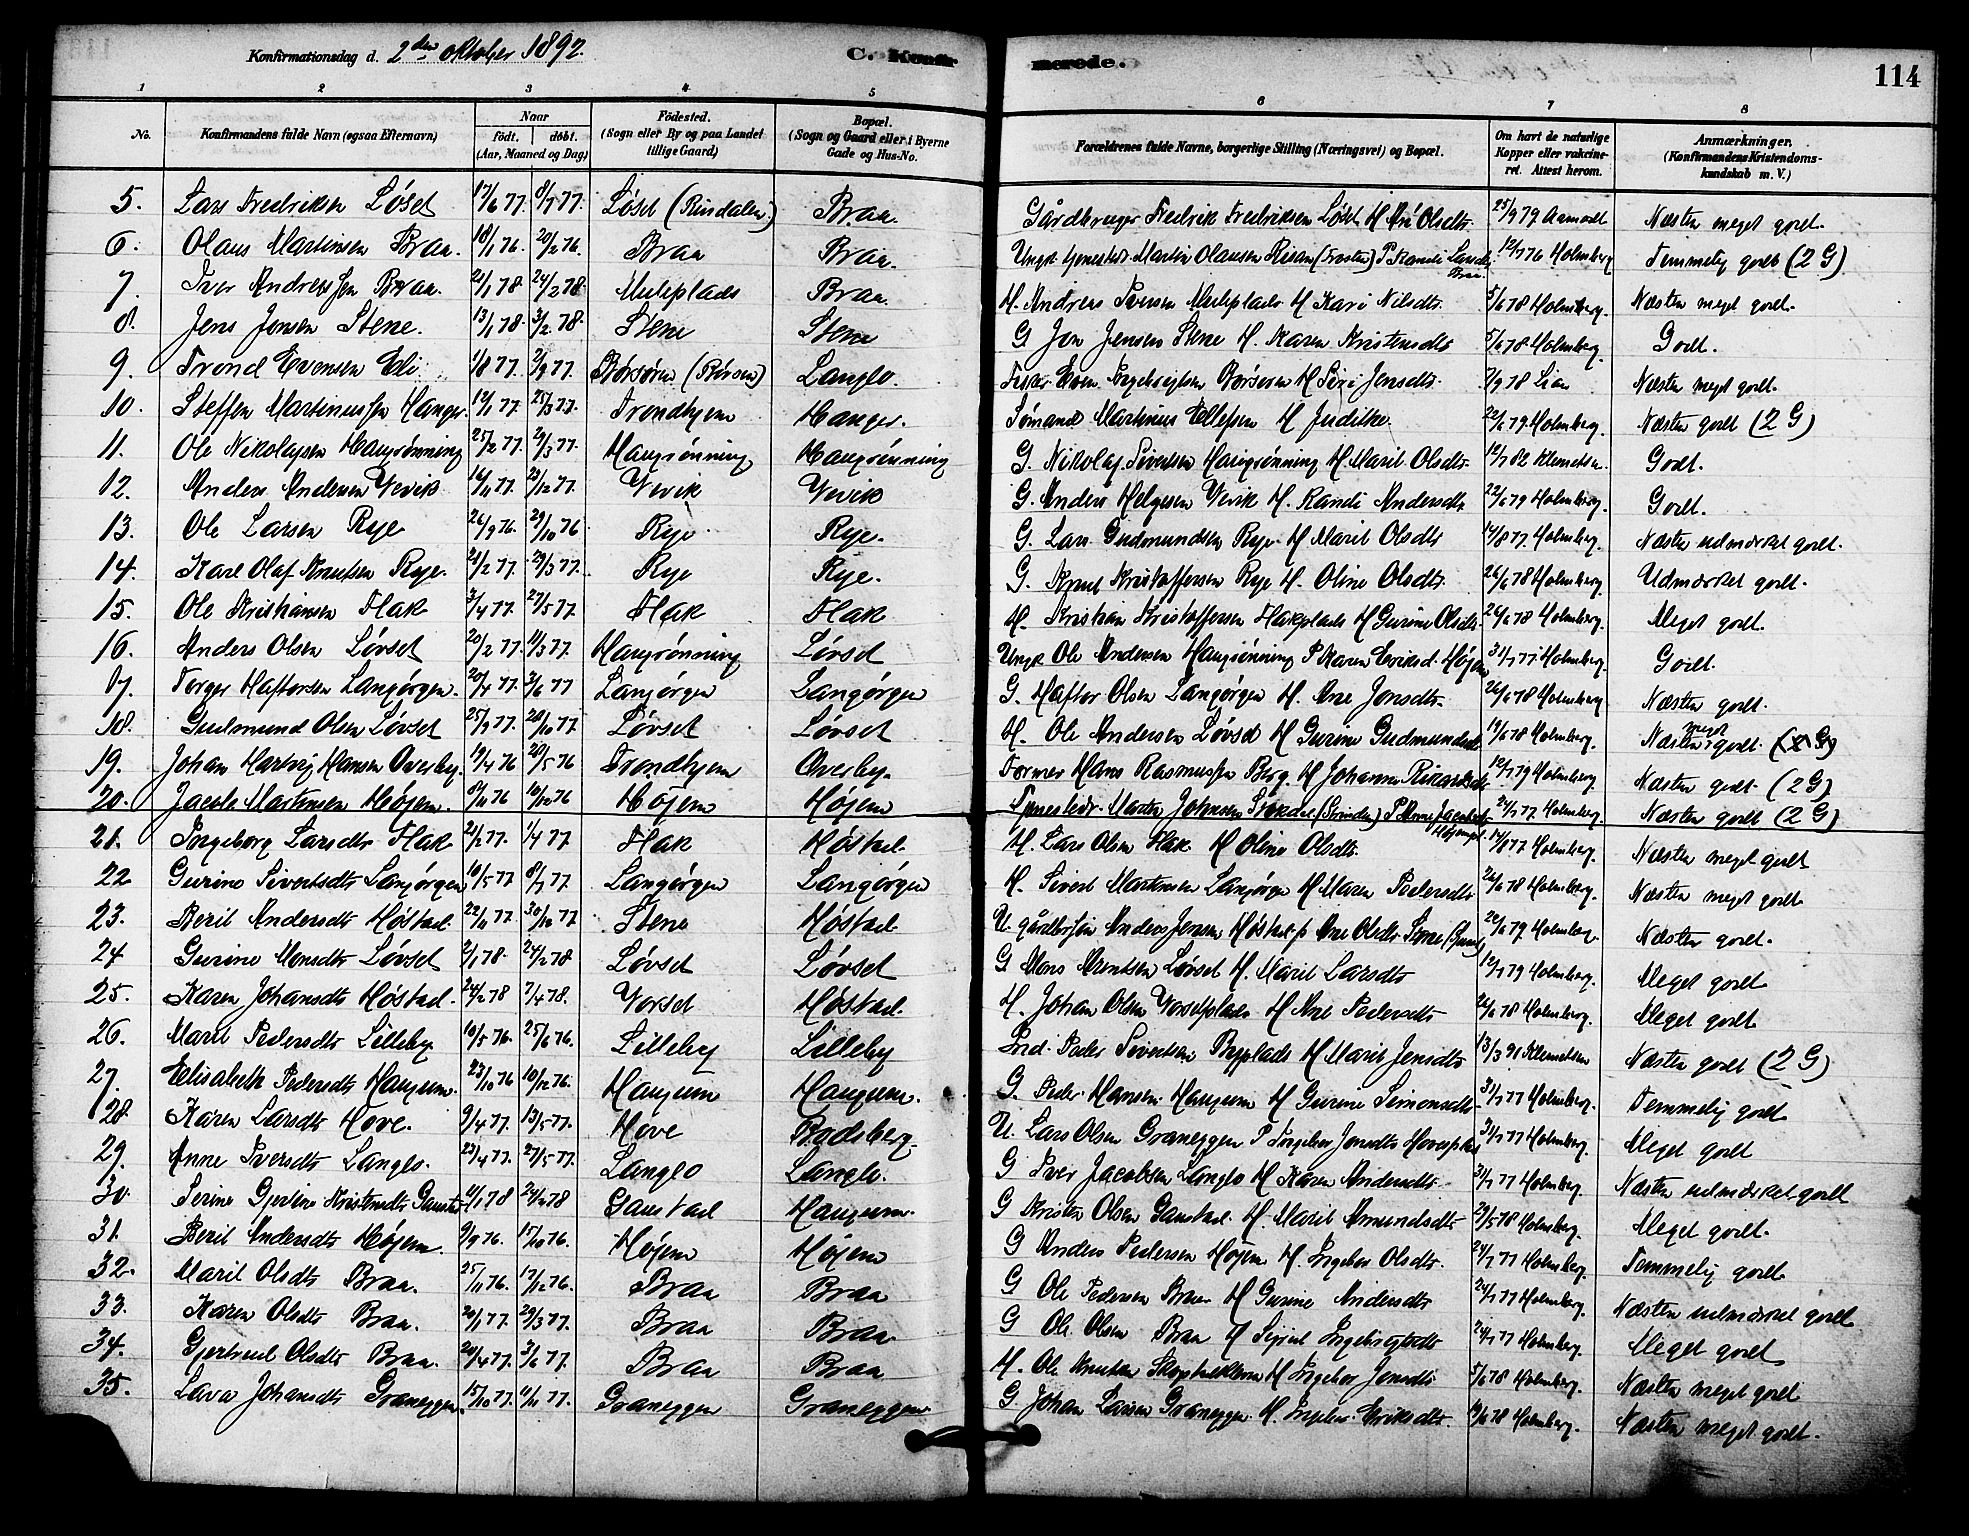 Konfirmationsdag d. 2den oktober 1892.
C. Konfirmerede.
114
1 2 3 4 5 6 7 8
No. Konfirmandens fulde Navn (ogsaa Efternavn) Naar født. døbt. (Aar, Maaned og Dag) Fødested. (Sogn eller By og paa Landet tillige Gaard) Bopæl. (Sogn og Gaard eller i Byerne Gade og Hus-No. Forældrenes fulde Navne, borgerlige Stilling (Næringsvei) og Bopæl. Om havt de naturlige Kopper eller vakcineret. Attest herom. Anmærkninger. (Konfirmandens Kristendomskundskab m. V.)
5. Lars Fredriksen Løset 17/6 77 8/7 77. Løset (Rindalen) Braa. Gårdbruger Fredrik Fredriksen Løset H Olsdtr. 25/9 79 Aamodt Næsten meget godt.
6. Olaus Martinsen Braa. 18/1 76. 20/2 76 Braa Braa. Ungk. tjenestedr. Martin Olausen Risan (Frosten) P Randi Larsdtr Braa. 12/7 76 Holmberg Temmelig godt (2 G)
7. Iver Andreassen Braa. 21/1 78 24/2 78 Muleplads Braa H. Andreas Iversen Muleplads H Kari Nilsdtr. 5/6 78 Holmberg. Næsten meget godt.
8. Jens Jonsen Stene. 13/1 78. 3/2 78. Stene Stene G Jon Jensen Stene H. Karen Kristensdtr 5/6 78 Holmberg. Godt.
9. Trond Evensen Eli 1/8 77. 2/9 77. Børsøren (Børsen) Langlo. Fisker Even Ingebrigtsen Børsøren H Siri Jensdtr. 7/9 78 Lian Næsten meget godt.
10. Steffen Martinussen Hanger. 12/1 77. 25/3 77. Trondhjem Hanger. Sømand Martinus Ellefsen H Judithe. 22/6 79 Holmberg. Næsten godt (2 G)
11. Ole Nikolaysen Haugrønning 25/2 77. 29/3 77. Haugrønning Haugrønning G. Nikolaj Sivertsen Haugrønning H Marit Olsdtr. 12/7 82 Klemetsen. Godt.
12. Anders Andersen Vevik 16/11 77. 23/12 77. Vevik Vevik G. Anders Helgesen Vevik H. Randi Andersdtr 22/6 79 Holmberg. Godt.
13. Ole Larsen Rye 26/9 76. 29/10 76 Rye. Rye. G. Lars Gudmundsen Rye H Marit Olsdtr 14/8 77. Holmberg. Næsten udmærket godt.
14. Karl Olaf Knutsen Rye. 21/2 77. 29/3 77. Rye Rye. G. Knut Kristoffersen Rye H. Oline Olsdtr. 26/6 78 Holmberg. Udmærket godt.
15. Ole Kristiansen Flak 3/4 77. 27/5 77. Flak Flak H. Kristian Kristoffersen Flakplads H Gurine Olsdtr. 26/6 78 Holmberg. Meget godt.
16. Anders Olsen Løvset 20/2 77. 11/3 77. Haugrønning Løvset Ungk Ole Andersen Haugrønning P Karen Eriksd. Højem 31/7 77. Holmberg. Godt.
17. Torger Haftorsen Langørgen. 20/4 77. 3/6 77 Langørgen Langørgen G. Haftor Olsen Langørgen H. Ane Jonsdtr. 26/6 78 Holmberg. Næsten godt.
18. Gudmund Olsen Løvset 25/9 77. 28/10 77. Løvset Løvset H. Ole Andersen Løvset H Gurine Gudmundsdtr 19/6 78 Holmberg. Næsten meget godt.
19. Johan Hartvig Hansen Overby. 19/4 76 28/5 76 Trondhjem Overby. Former Hans Rasmussen Berg. H Johanna Rikardsdtr 12/7 79 Holmberg. Næsten godt. (2 G)
20. Jacob Martinsen Højem. 8/11 76 10/12 76 Højem Højem Tjenestedr. Martin Johnsen (Strinden) P Jacobsdtr Højempl. 24/7 77. Holmberg. Næsten godt (2 G)
21. Ingeborg Larsdtr Flak 20/2 77. 1/4 77. Flak Høstad. H. Lars Olsen Flak H Oline Olsdtr. 14/8 77. Holmberg. Næsten meget godt
22 Gurine Sivertsdtr Langørgen 10/5 77 8/7 77. Langørgen Langørgen H. Sivert Martinsen Langørgen H Maren Pedersdtr 26/6 78 Holmberg. Næsten meget godt
23. Berit Andersdtr Høstad. 22/11 77. 30/12 77. Stene Høstad. U. gårdbr.søn Anders Jensen Høstad p Ane Olsdtr Stene 22/6 79 Holmberg. Næsten godt.
24 Gurine Monsdtr Løvset 2/1 78. 24/2 78 Løvset Løvset G Mons Arentsen Løvset H. Marit Larsdtr 12/7 79 Holmberg. Meget godt
25. Karen Johansdtr Høstad. 24/2 78 7/4 78. Vorset Høstad. H. Johan Olsen Vorsetplads H Ane Pedersdtr 26/6 78 Holmberg. Meget godt
26. Marit Pedersdtr Lilleby 10/5 76. 25/6 76. Lilleby Lilleby Ind. Peder Sivertsen Byplads H Marit Jensdtr 13/3 91 Klemetsen Næsten godt (2 G)
27. Elisabeth Pedersdtr Haugum. 23/10 76 10/12 76. Haugum Haugum. G. Peder Hansen Haugum H Gurine Simonsdtr 31/7 77 Holmberg. Temmelig godt
28. Karen Larsdtr Hove. 9/4 77. 13/5 77. Hove Rodsberg. U. Lars Olsen Graneggen P Ingebor Jonsdtr Hovepl. 31/7 77 Holmberg. Meget godt
29. Anne Iversdtr Langlo. 23/4 77. 27/5 77. Langlo Langlo. G Iver Jacobsen Langlo H Karen Andersdtr 31/7 77 Holmberg. Næsten udmærket godt
30. Serine Gjertine Kristensdtr Gaustad 11/1 78 24/2 78 Gaustad Haugum. G Kristen Olsen Gaustad. H. Marit Amundsdtr 29/5 78 Holmberg. Meget godt.
31. Berit Andersdtr Højem. 9/9 76. 15/10 76. Højem Højem G Anders Pedersen Højem H. Ingebor Olsdtr. 24/7 77 Holmberg. Temmelig godt
32. Marit Olsdtr Braa. 25/11 76. 17/12 76. Braa Braa G Ole Pedersen Braa H Gurine Andersdtr 24/7 77 Holmberg. Næsten udmærket godt
33. Karen Olsdtr Braa. 20/1 77. 29/3 77. Braa Braa. G Ole Olsen Braa H Sigrid Ingebrigtsdtr 24/7 77 Holmberg. Meget godt
34. Gjertrud Olsdtr Braa. 20/4 77. 3/6 77. Braa Braa. H. Ole Knutsen H Ingebor Jonsdtr 5/6 78 Holmberg. Næsten meget godt
35. Lava Johansdtr Graneggen. 15/10 77. 11/11 77. Graneggen Graneggen G Johan Larsen Graneggen. H. Ingebor Eriksdtr. 19/6 78 Holmberg. Næsten meget godt.